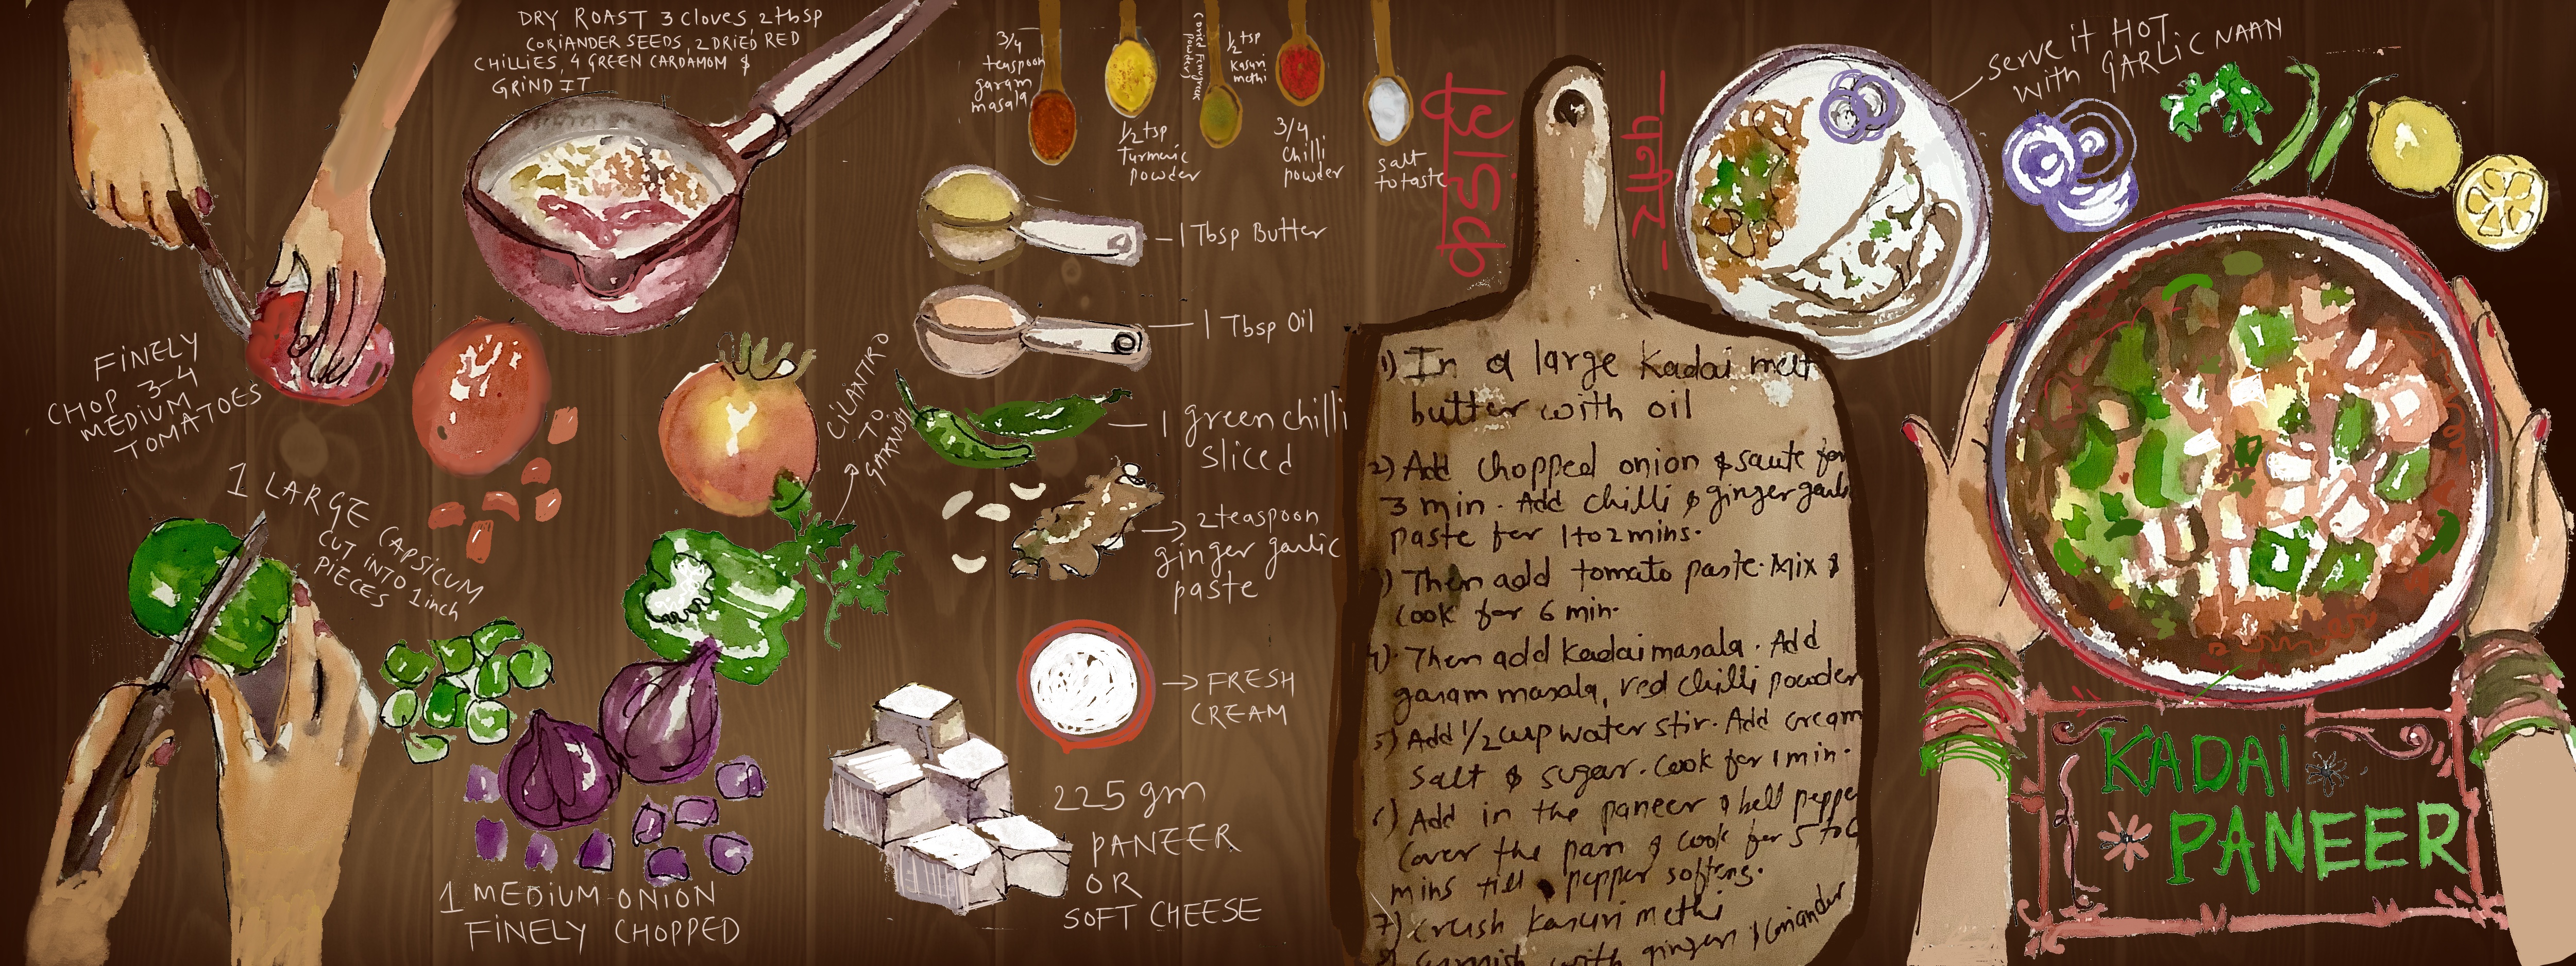 DRY ROAST 3 cloves 2tbsp
CORIANDER SEEDS, 2 DRIED RED
CHILLIES, 4 GREEN CARDAMOM &
GRIND IT
FINELY
CHOP 3-4
MEDIUM
TOMATOES
1 LARGE CAPSICUM
CUT INTO 1 inch
PIECES
CILANTRO
TO
GARNISH
1 MEDIUM ONION
FINELY CHOPPED
3/4
teaspoon
garam
masala
1/2 tsp
Turmeric
powder
(Dried Fenugreek
powder)
1/2 tsp
Kasuri
methi
3/4
chilli
powder
salt
to taste
1 Tbsp Butter
1 Tbsp Oil
1 green chilli
sliced
2 teaspoon
ginger garlic
paste
FRESH
CREAM
225 gm
PANEER
OR
SOFT CHEESE
कड़ाही
पनीर
1) In a large Kadai melt
butter with oil
2) Add chopped onion & saute for
3 min. Add chilli & ginger garli
paste for 1 to 2 mins.
) Then add tomato paste. Mix &
cook for 6 min.
4). Then add Kadai masala. Add
garam masala, red chilli powder
5) Add 1/2 cup water stir. Add cream
salt & sugar. Cook for 1 min.
6) Add in the paneer & bell peppe
cover the pan & cook for 5 to 6
mins till pepper softens.
7) Crush Kasuri methi
8) Garnish with ginger & Coriander
serve it HOT
with GARLIC NAAN
KADAI
PANEER